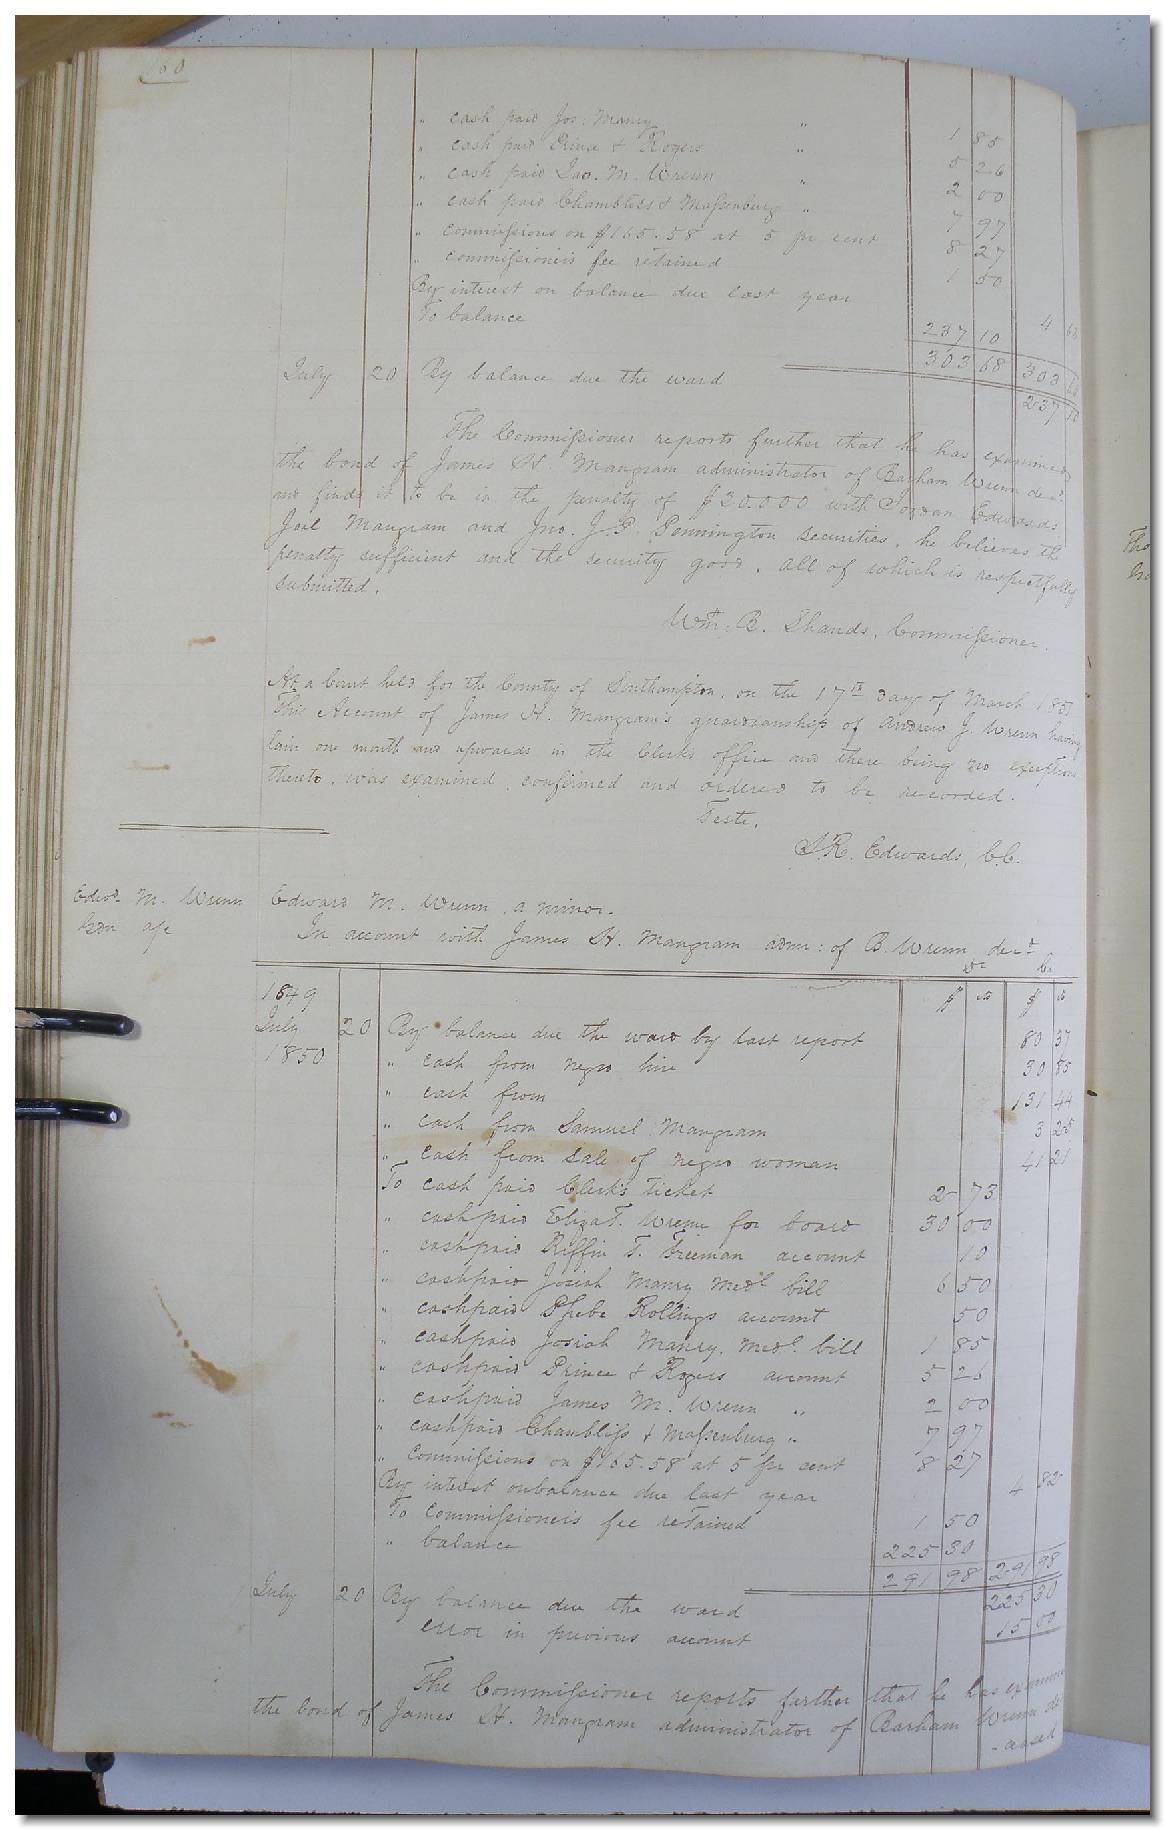 160
" cash paid Jos: Manry " 1 85
" cash paid Prince & Rogers " 5 26
" cash paid Jas. M. Wrenn " 2 00
" cash paid Chambliss & Massenburg " 7 97
" commissions on $165.58 at 5 pr cent 8 27
" commissioneis fee retained 1 50
By interest on balance due last year 4
To balance 237 10
303 68 303
July 20 By balance due the ward 237 10
The Commissioner reports further that he has examined
the bond of James H. Mangram administrator of Barham Wrenn decd.
and finds it to be in the penalty of $20.000 with Jordan Edwards
Joel Mangram and Jno. J. P. Pennington securities, he believes the
penalty sufficient and the security good. all of which is respectfully
submitted.
Wm. B. Shands, Commissioner.
At a Court held for the County of Southampton, on the 17th day of March 1851
This Account of James H. Mangram's guardianship of Andrew J. Wrenn having
lain one month and upwards in the Clerks office and there being no exception
thereto, was examined, confirmed and ordered to be recorded.
Teste,
L.R. Edwards, C.C.
Edwd. M. Wrenn Edward M. Wrenn, a minor.
Gdn a/c In account with James H. Mangram admr: of B. Wrenn, decd
Dr Cr
1849 $ cts $ cts
July 20 By balance due the ward by last report 80 37
1850 " cash from negro hire 30 85
" cash from 131 44
" cash from Samuel Mangram 3 25
" cash from sale of negro woman 41 21
To cash paid Clerk's Ticket 2 73
" cash paid Eliza T. Wrenn for board 30 00
" cash paid Riffin T. Freeman account 10
" cash paid Josiah Manry Medl bill 6 50
" cash paid Phebe Rollings account 50
" cash paid Josiah Manry, Medl. bill 1 85
" cash paid Prince & Rogers account 5 26
" cash paid James M. Wrenn " 2 00
" cash paid Chambliss & Massenburg " 7 97
" Commissions on $165.58 at 5 pr cent 8 27
By interest on balance due last year 4 82
To Commissioneis fee retained 1 50
" balance 225 30
291 98 291 98
July 20 By balance due the ward 225 30
error in previous account 15 00
The Commissioner reports further that he has examined
the bond of James H. Mangram administrator of Barham Wrenn de
-ceased